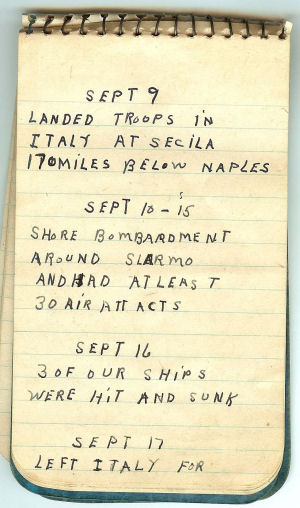 SEPT 9
LANDED TROOPS iN
ITALY AT SECILA
170 MILES BELOW NAPLES
SEPT 10 - 15
SHORE BOMBARDMENT
AROUND SLARMO
AND HAD AT LEAST
30 AiR ATTACTS
SEPT 16
3 OF OUR SHiPS
WERE HiT AND SUNK
SEPT 17
LEFT ITALY FOR